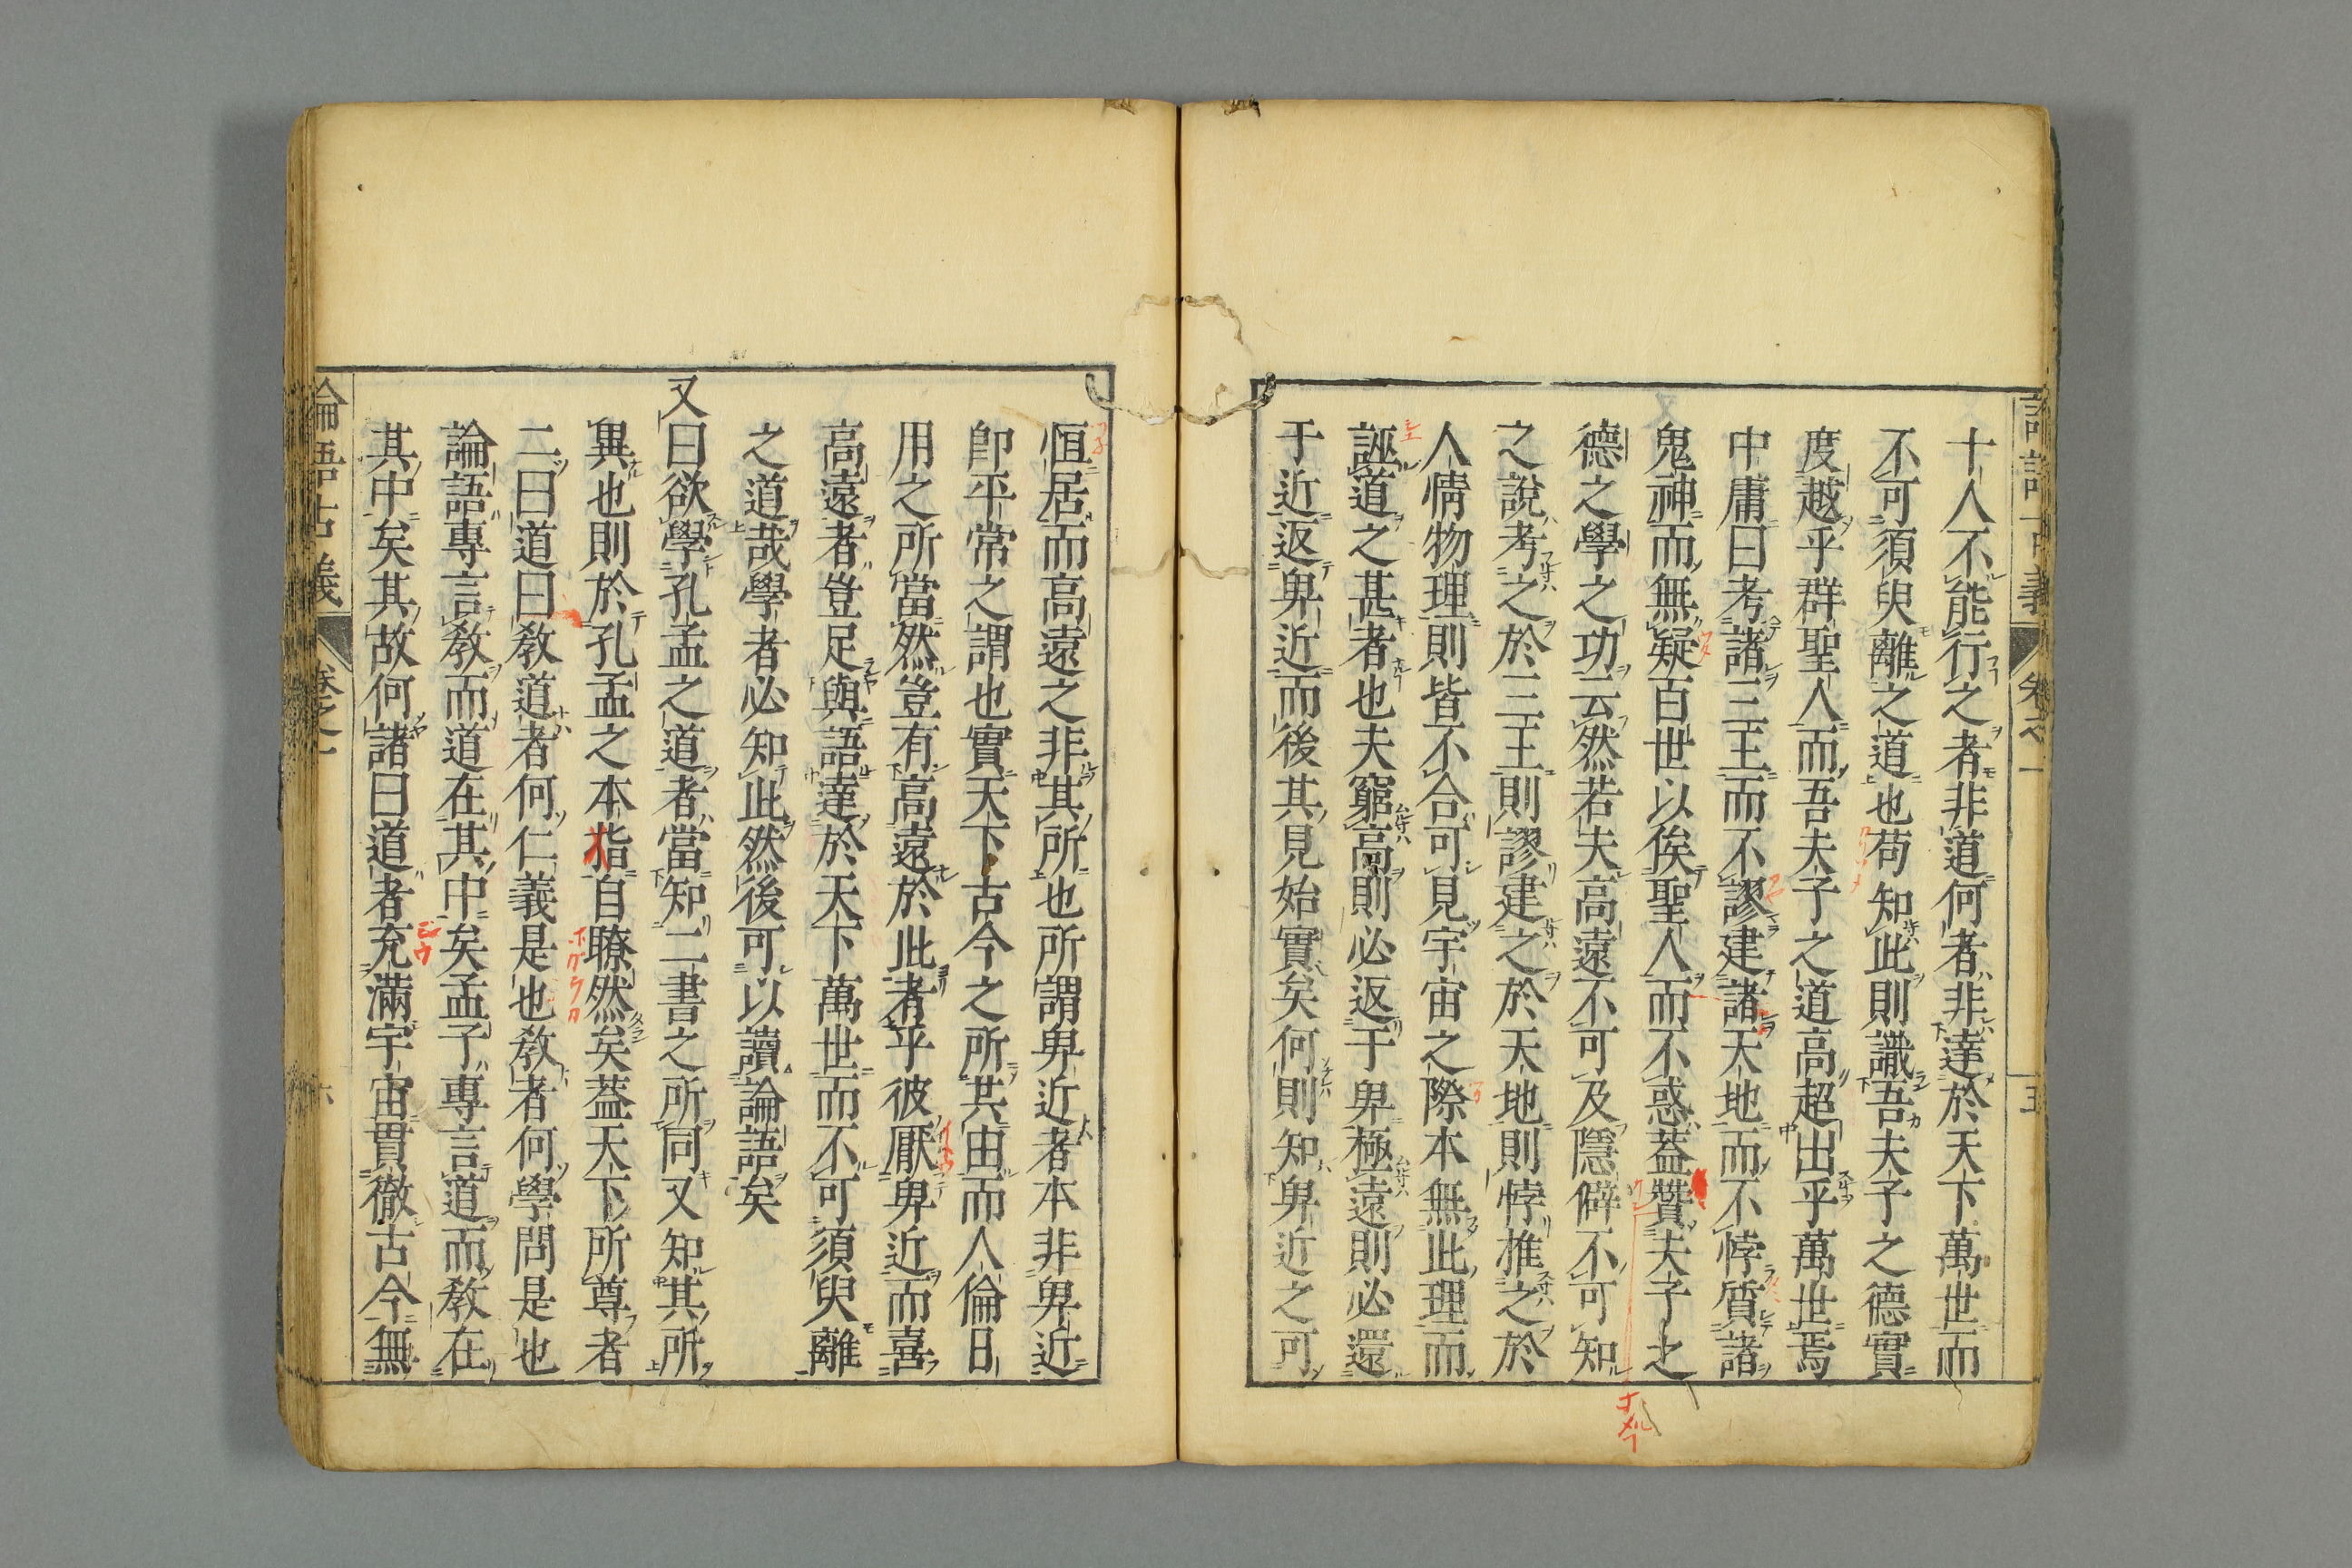 十人不能行之者非道何者非達於天下萬世而
不可須臾離之道也苟知此則識吾夫子之德實
度越乎群聖人而吾夫子之道高超出乎萬世焉
中庸曰考諸三王而不謬建諸天地而不悖質諸
鬼神而無疑百世以俟聖人而不惑蓋贊夫子之
德之學之功云然若夫高遠不可及隱僻不可知
之說考之於三王則謬建之於天地則悖推之於
人情物理則皆不合可見宇宙之際本無此理而
誣道之甚者也夫窮高則必返于卑極遠則必還
于近返卑近而後其見始實矣何則知卑近之可
恒居而高遠之非其所也所謂卑近者本非卑近
卽平常之謂也實天下古今之所共由而人倫日
用之所當然豈有高遠於此者乎彼厭卑近而喜
高遠者豈足與語達於天下萬世而不可須臾離
之道哉學者必知此然後可以讀論語矣
又曰欲學孔孟之道者當知二書之所同又知其所
異也則於孔孟之本指自瞭然矣蓋天下所尊者
二曰道曰教道者何仁義是也教者何學問是也
論語專言教而道在其中矣孟子專言道而教在
其中矣其故何諸曰道者充滿宇宙貫徹古今無
論語古義 卷之一